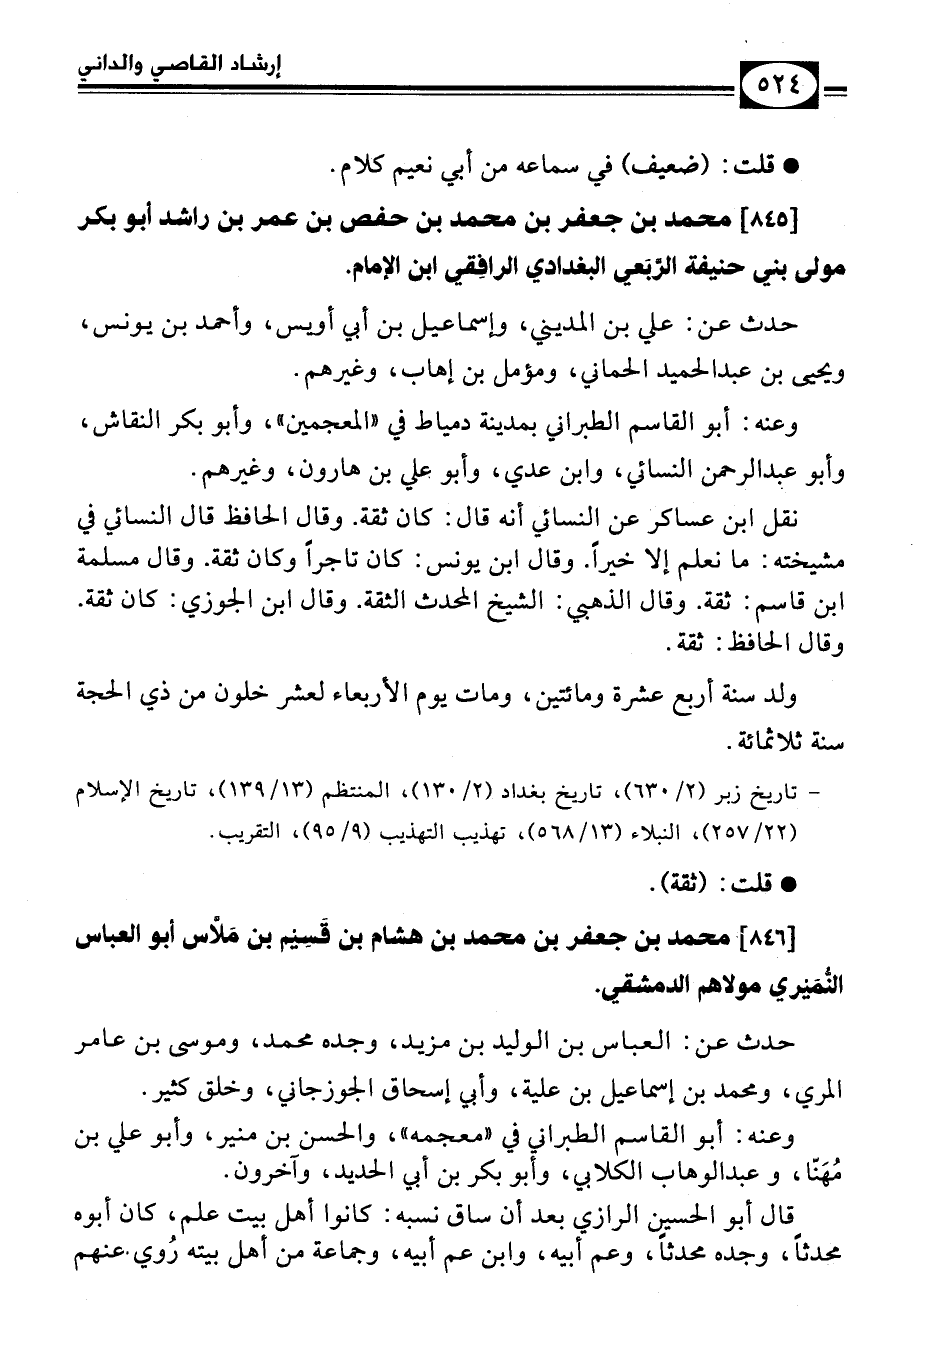 إرشاد القاصي والداني
٥٢٤
● قلت: (ضعيف) في سماعه من أبي نعيم كلام.
[٨٤٥] محمد بن جعفر بن محمد بن حفص بن عمر بن راشد أبو بكر
مولى بني حنيفة الرَّبَعي البغدادي الرافِقي ابن الإمام.
حدث عن: علي بن المديني، وإسماعيل بن أبي أويس، وأحمد بن يونس،
ويحيى بن عبدالحميد الحماني، ومؤمل بن إهاب، وغيرهم.
وعنه: أبو القاسم الطبراني بمدينة دمياط في «المعجمين»، وأبو بكر النقاش،
وأبو عبدالرحمن النسائي، وابن عدي، وأبو علي بن هارون، وغيرهم.
نقل ابن عساكر عن النسائي أنه قال: كان ثقة. وقال الحافظ قال النسائي في
مشيخته: ما نعلم إلا خيراً. وقال ابن يونس: كان تاجراً وكان ثقة. وقال مسلمة
ابن قاسم: ثقة. وقال الذهبي: الشيخ المحدث الثقة. وقال ابن الجوزي: كان ثقة.
وقال الحافظ: ثقة.
ولد سنة أربع عشرة ومائتين، ومات يوم الأربعاء لعشر خلون من ذي الحجة
سنة ثلاثمائة.
- تاريخ زبر (٢/ ٦٣٠)، تاريخ بغداد (٢/ ١٣٠)، المنتظم (١٣/ ١٣٩)، تاريخ الإسلام
(٢٢/ ٢٥٧)، النبلاء (١٣/ ٥٦٨)، تهذيب التهذيب (٩/ ٩٥)، التقريب.
● قلت: (ثقة).
[٨٤٦] محمد بن جعفر بن محمد بن هشام بن قَسِيْم بن مَلاَّس أبو العباس
النُّمَيْري مولاهم الدمشقي.
حدث عن: العباس بن الوليد بن مزيد، وجده محمد، وموسى بن عامر
المري، ومحمد بن إسماعيل بن علية، وأبي إسحاق الجوزجاني، وخلق كثير.
وعنه: أبو القاسم الطبراني في «معجمه»، والحسن بن منير، وأبو علي بن
مُهَنّا، و عبدالوهاب الكلابي، وأبو بكر بن أبي الحديد، وآخرون.
قال أبو الحسين الرازي بعد أن ساق نسبه: كانوا أهل بيت علم، كان أبوه
محدثاً، وجده محدثاً، وعم أبيه، وابن عم أبيه، وجماعة من أهل بيته رُوي عنهم